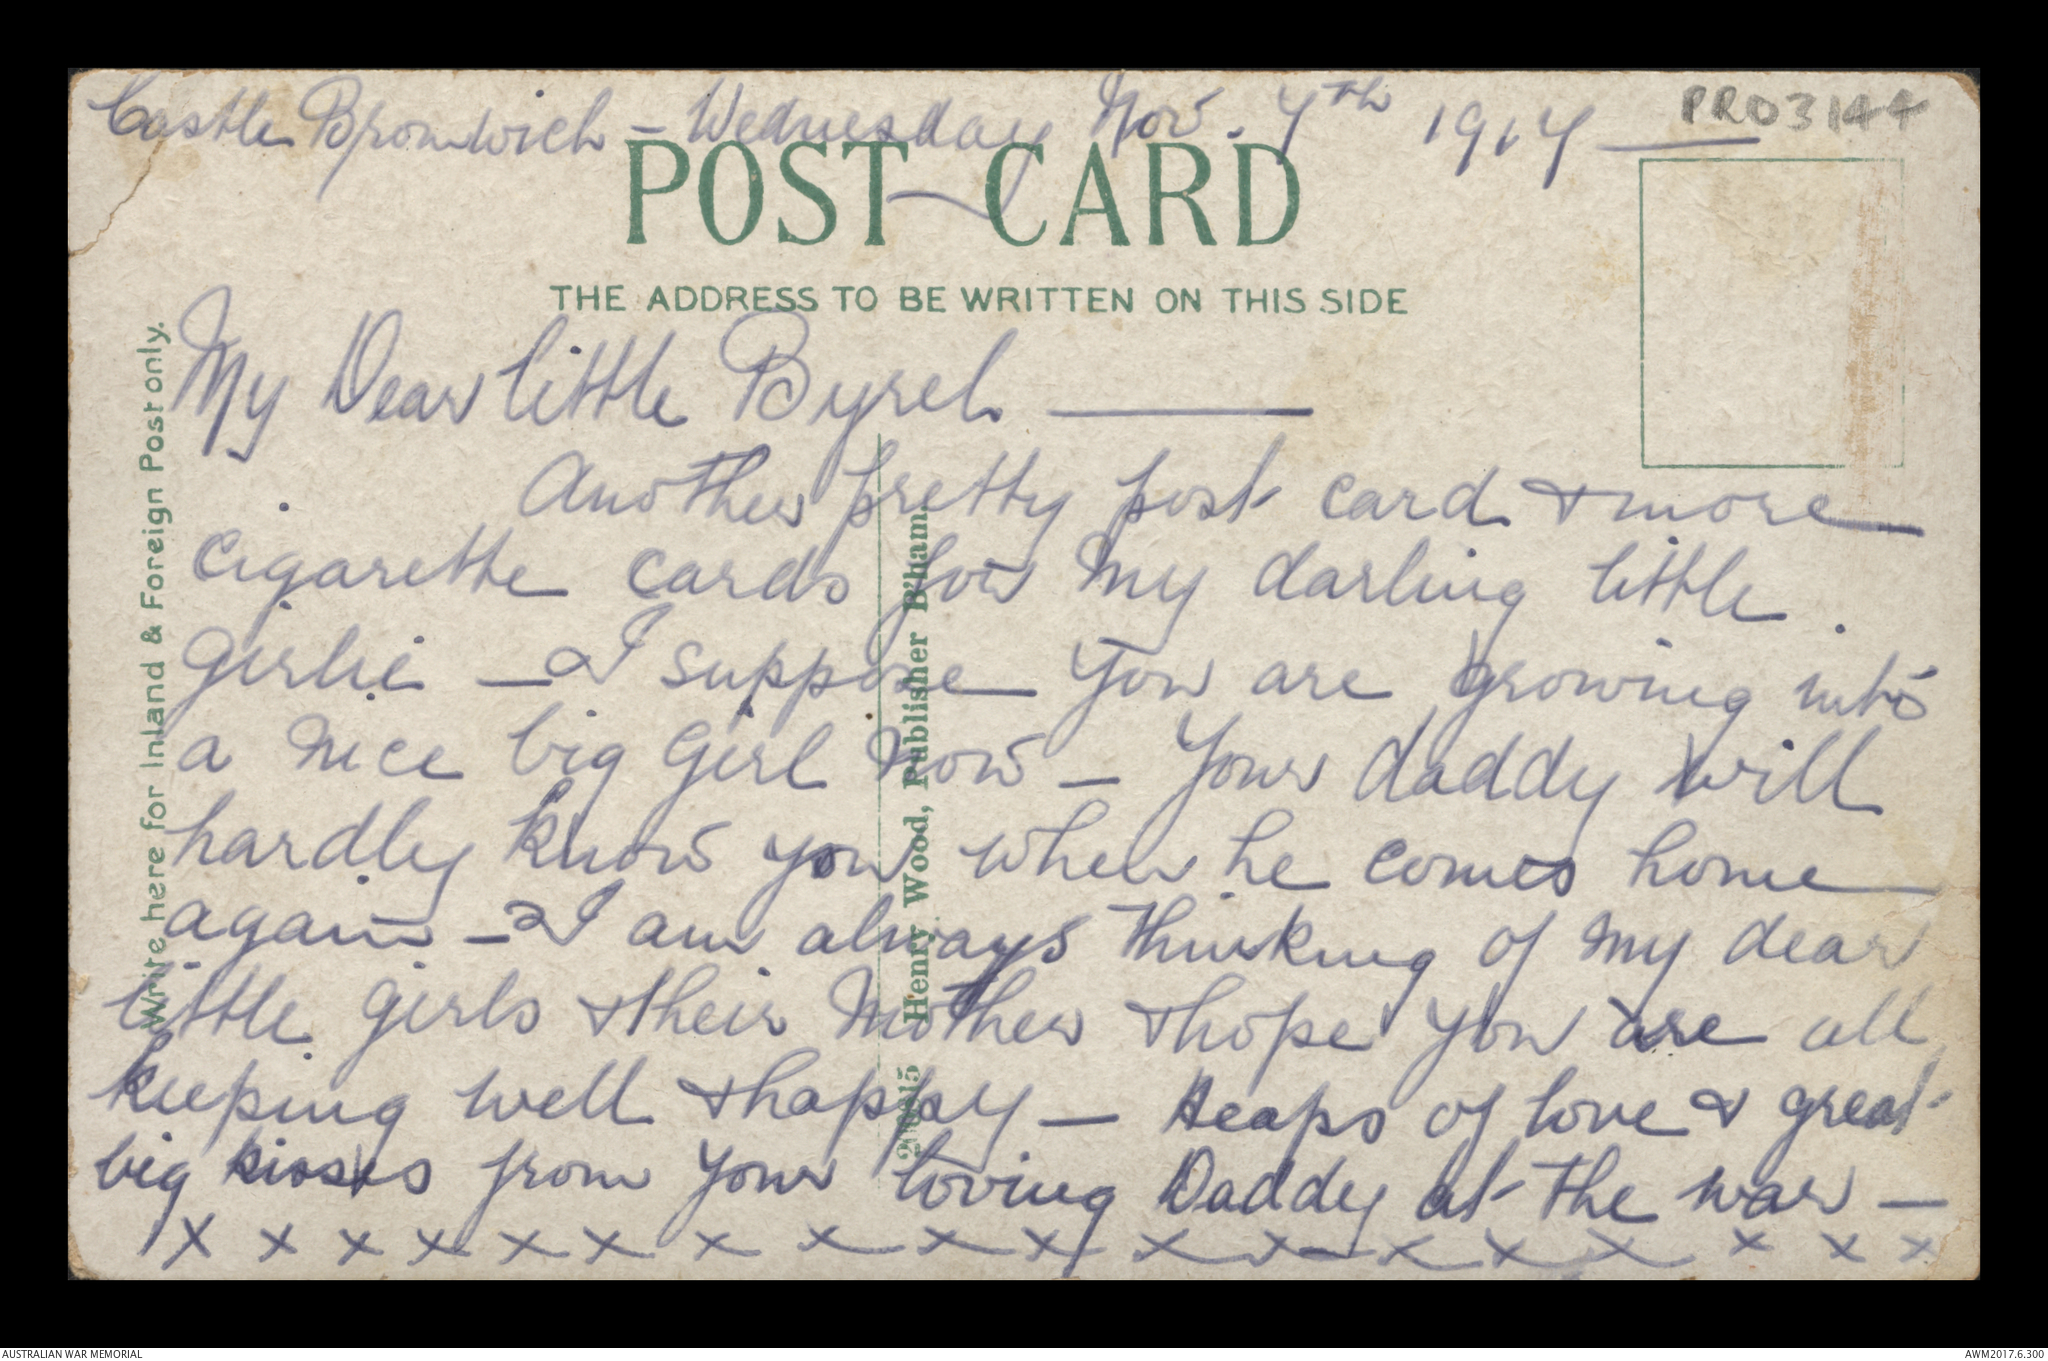 Castle Bromwich - Wednesday Nov. 7th 1917
PR03144
POST CARD
THE ADDRESS TO BE WRITTEN ON THIS SIDE
My Dear little Byrel
Another pretty post card & more
cigarette cards for my darling little
girlie - I suppose you are growing into
a nice big girl now - Your daddy will
hardly know you when he comes home
again - I am always thinking of my dear
little girls & their Mother & hope you are all
keeping well & happy - Heaps of love & great
big kisses from your loving Daddy at the war -
x x x x x x x x x x x x x x x x x x
Write here for Inland & Foreign Post only.
Henry Wood, Publisher B'ham.
AUSTRALIAN WAR MEMORIAL
AWM2017.6.300